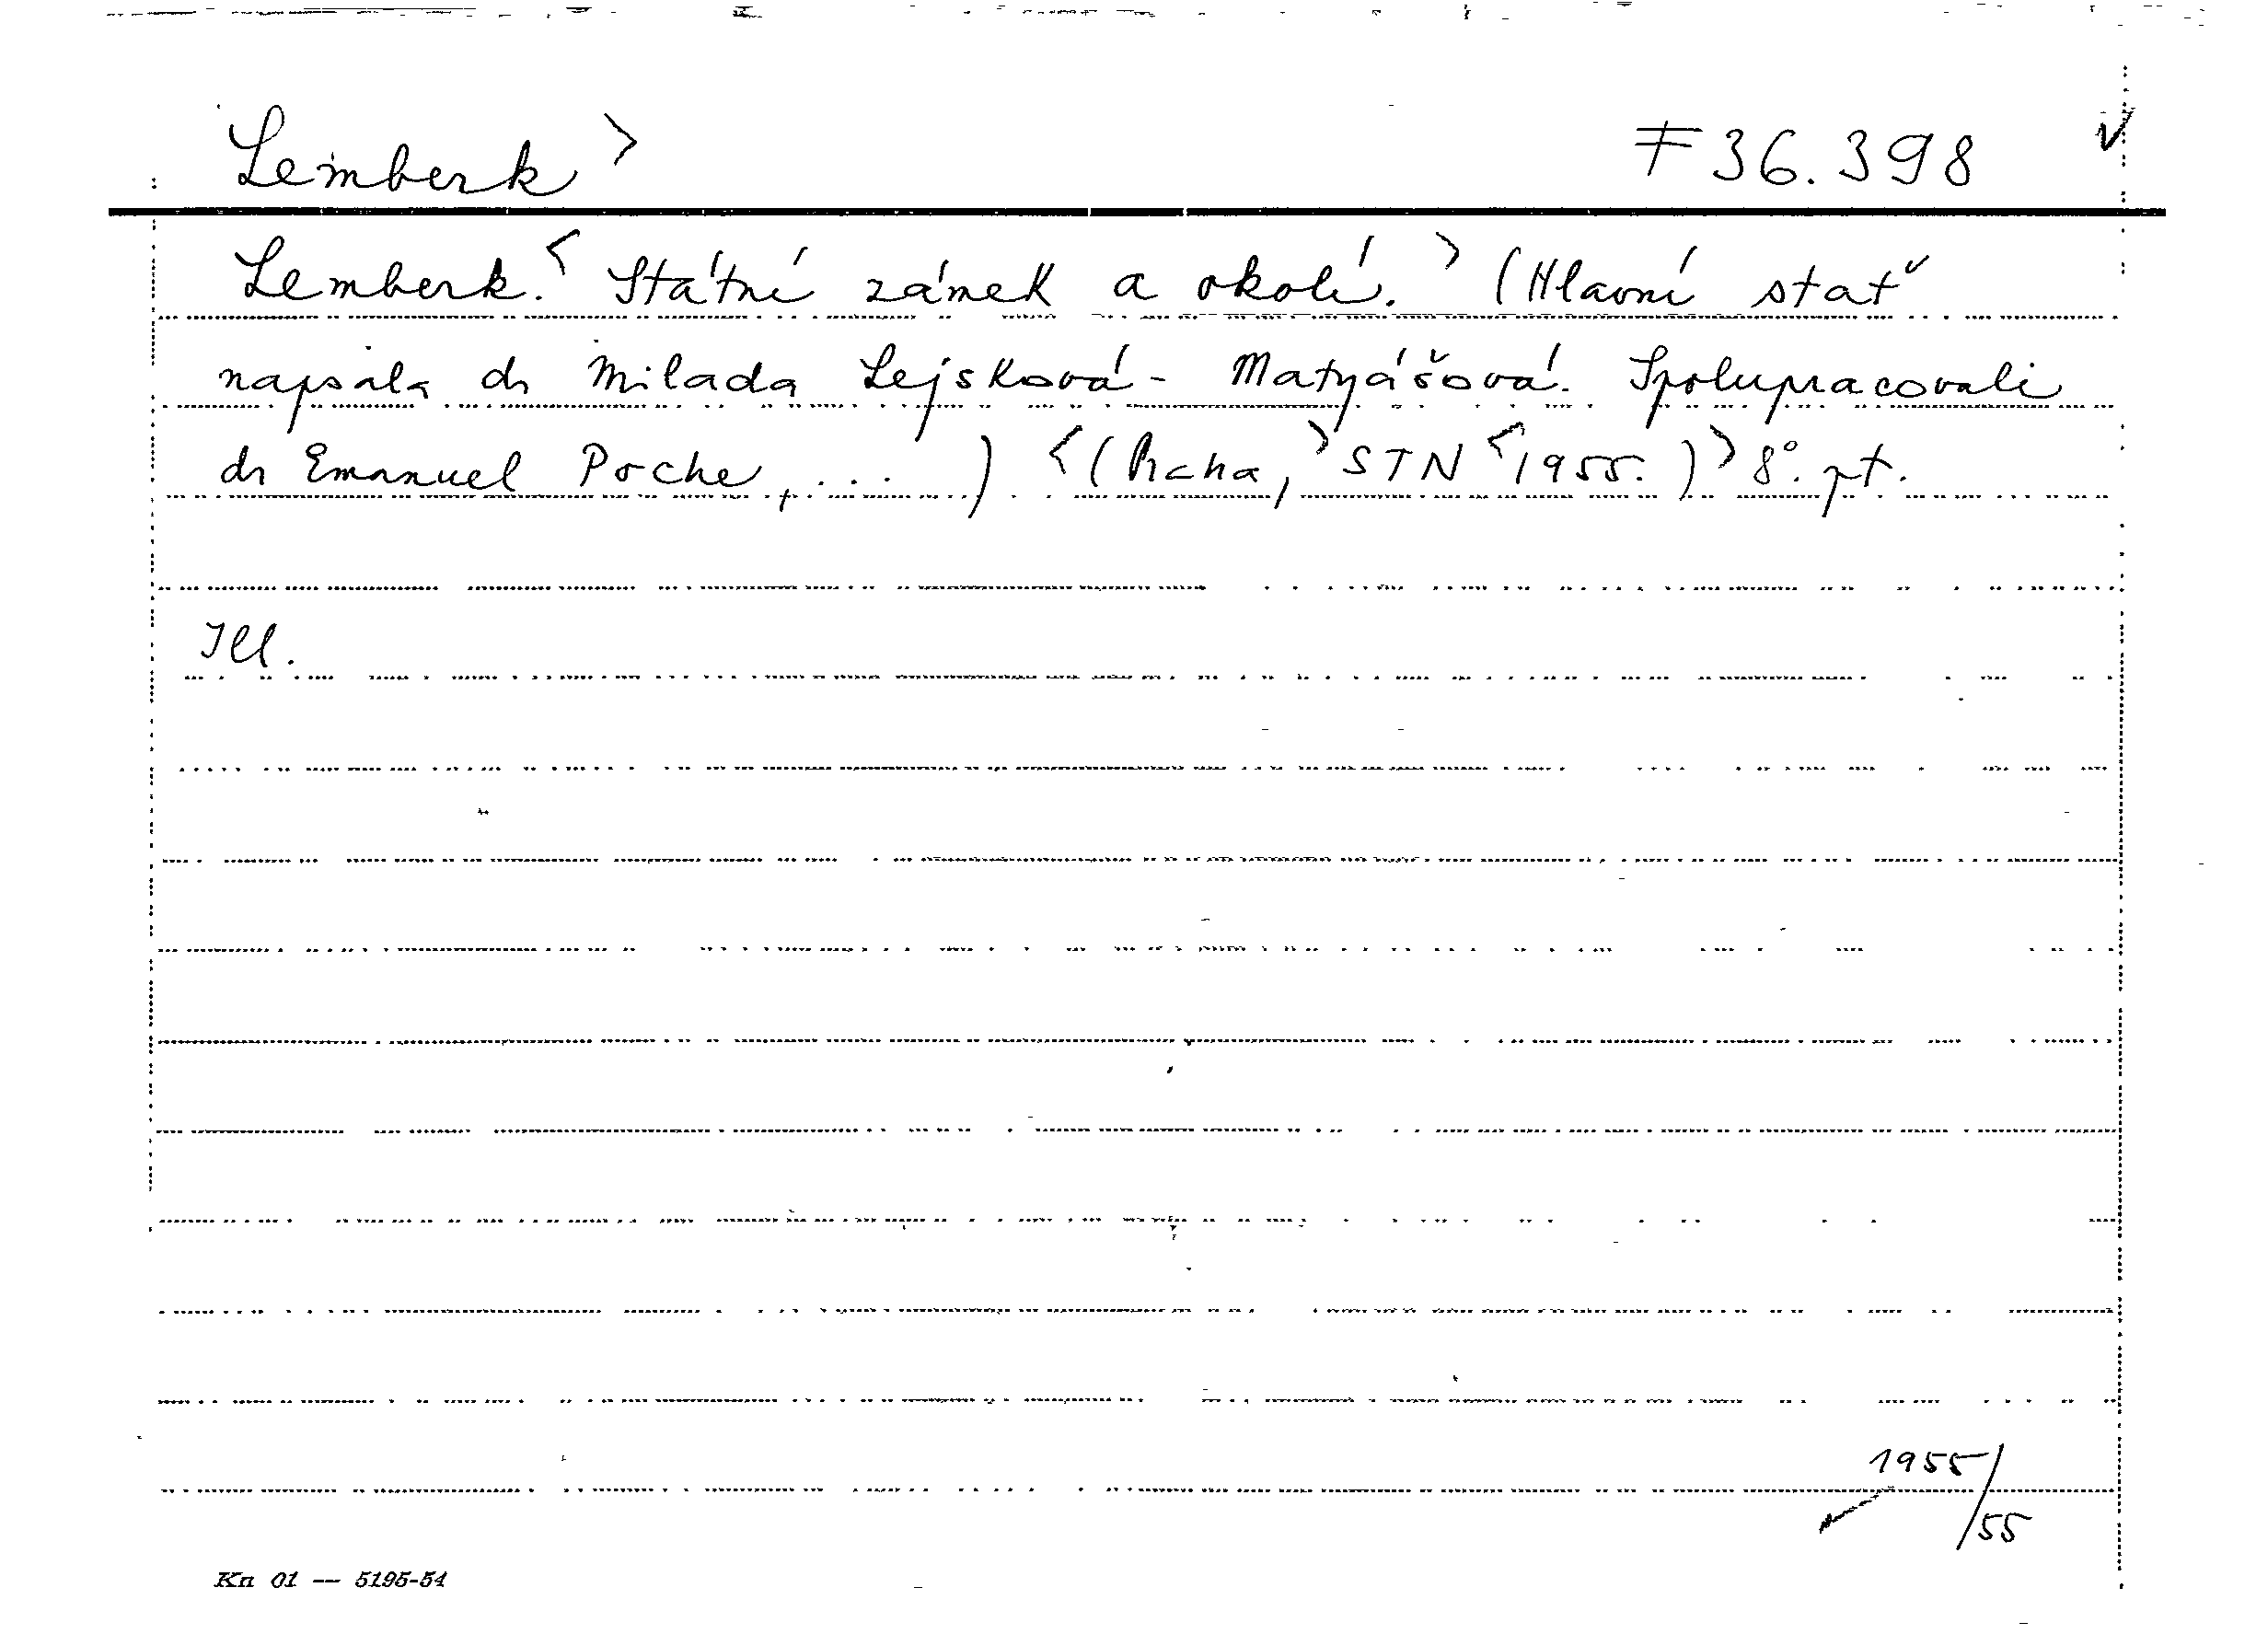 Lemberk > F 36.398 v
Lemberk. < Státní zámek a okolí. > (Hlavní stať
napsala dr Milada Lejsková-Matyášová. Spolupracovali
dr Emanuel Poche, ...) < (Praha, > STN < 1955.) > 8°. pt.
Ill.
1955/
/55
Kn 01 — 5195-54